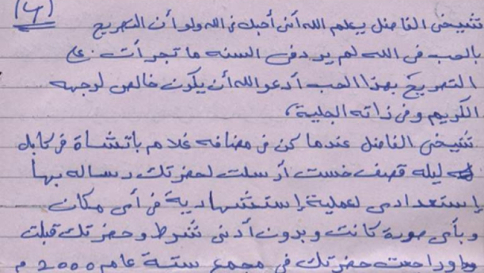 (٤)
شيخي الفاضل يعلم الله أنني أحبك في الله ولو أن التصريح
بالحب في الله لم يرد في السنه ما تجرأت على
التصريح بهذا الحب أدعو الله أن يكون خالص لوجهه
الكريم وفي ذاته الجلية،
شيخي الفاضل عندما كن في مضافه غلام باتشاة في كابل
ليله قصف خست أرسلت لحضرتك رساله بها
إستعدادى لعملية إستشهادية في أى مكان
وبأى صورة كانت وبدون أدنى شرط وحضرتك قبلت
وراجعت حضرتك في مجمع ستة عام ٢٠٠٠ م